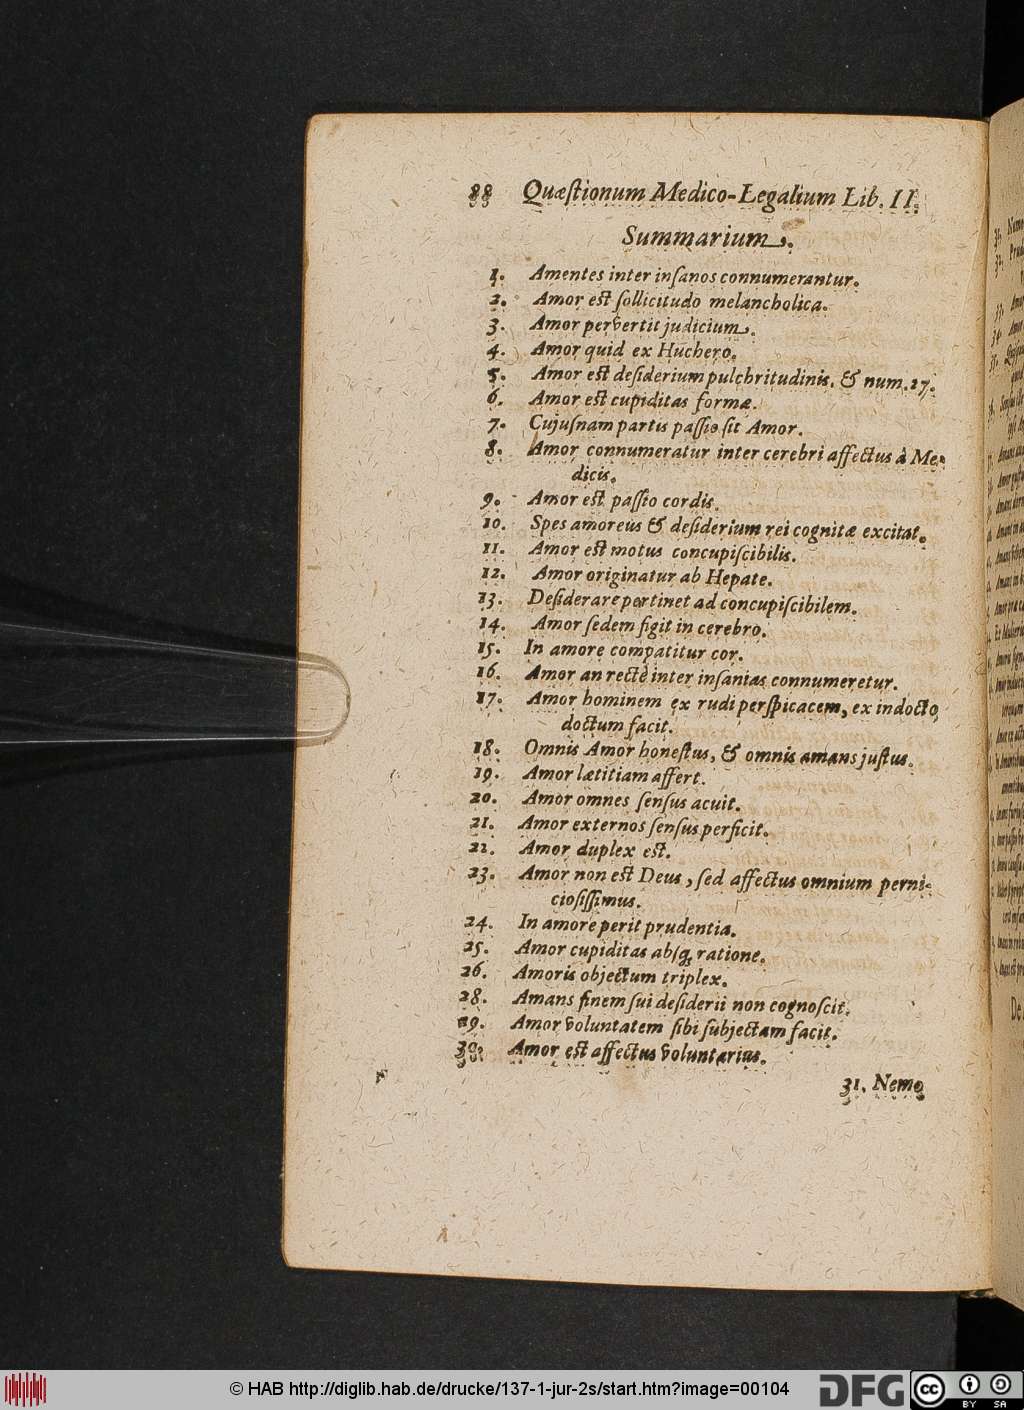 88 Quæſtionum Medico-Legalium Lib. II.
Summarium.
1. Amentes inter inſanos connumerantur.
2. Amor est ſollicitudo melancholica.
3. Amor pervertit judicium.
4. Amor quid ex Huchero.
5. Amor est deſiderium pulchritudinis. & num. 27.
6. Amor est cupiditas formæ.
7. Cujuſnam partis paſſio ſit Amor.
8. Amor connumeratur inter cerebri affectus à Me-
dicis.
9. Amor est paſſio cordis.
10. Spes amoreus & deſiderium rei cognitæ excitat.
11. Amor est motus concupiſcibilis.
12. Amor originatur ab Hepate.
13. Deſiderare pertinet ad concupiſcibilem.
14. Amor ſedem figit in cerebro.
15. In amore compatitur cor.
16. Amor an rectè inter inſanias connumeretur.
17. Amor hominem ex rudi perſpicacem, ex indocto,
doctum facit.
18. Omnis Amor honeſtus, & omnis amans juſtus.
19. Amor lætitiam affert.
20. Amor omnes ſenſus acuit.
21. Amor externos ſenſus perficit.
22. Amor duplex est.
23. Amor non est Deus, ſed affectus omnium perni-
cioſiſſimus.
24. In amore perit prudentia.
25. Amor cupiditas abſq; ratione.
26. Amoris objectum triplex.
28. Amans finem ſui deſiderii non cognoſcit.
29. Amor voluntatem ſibi ſubjectam facit.
30. Amor est affectus voluntarius.
31. Nemo
© HAB http://diglib.hab.de/drucke/137-1-jur-2s/start.htm?image=00104
DFG
cc BY SA